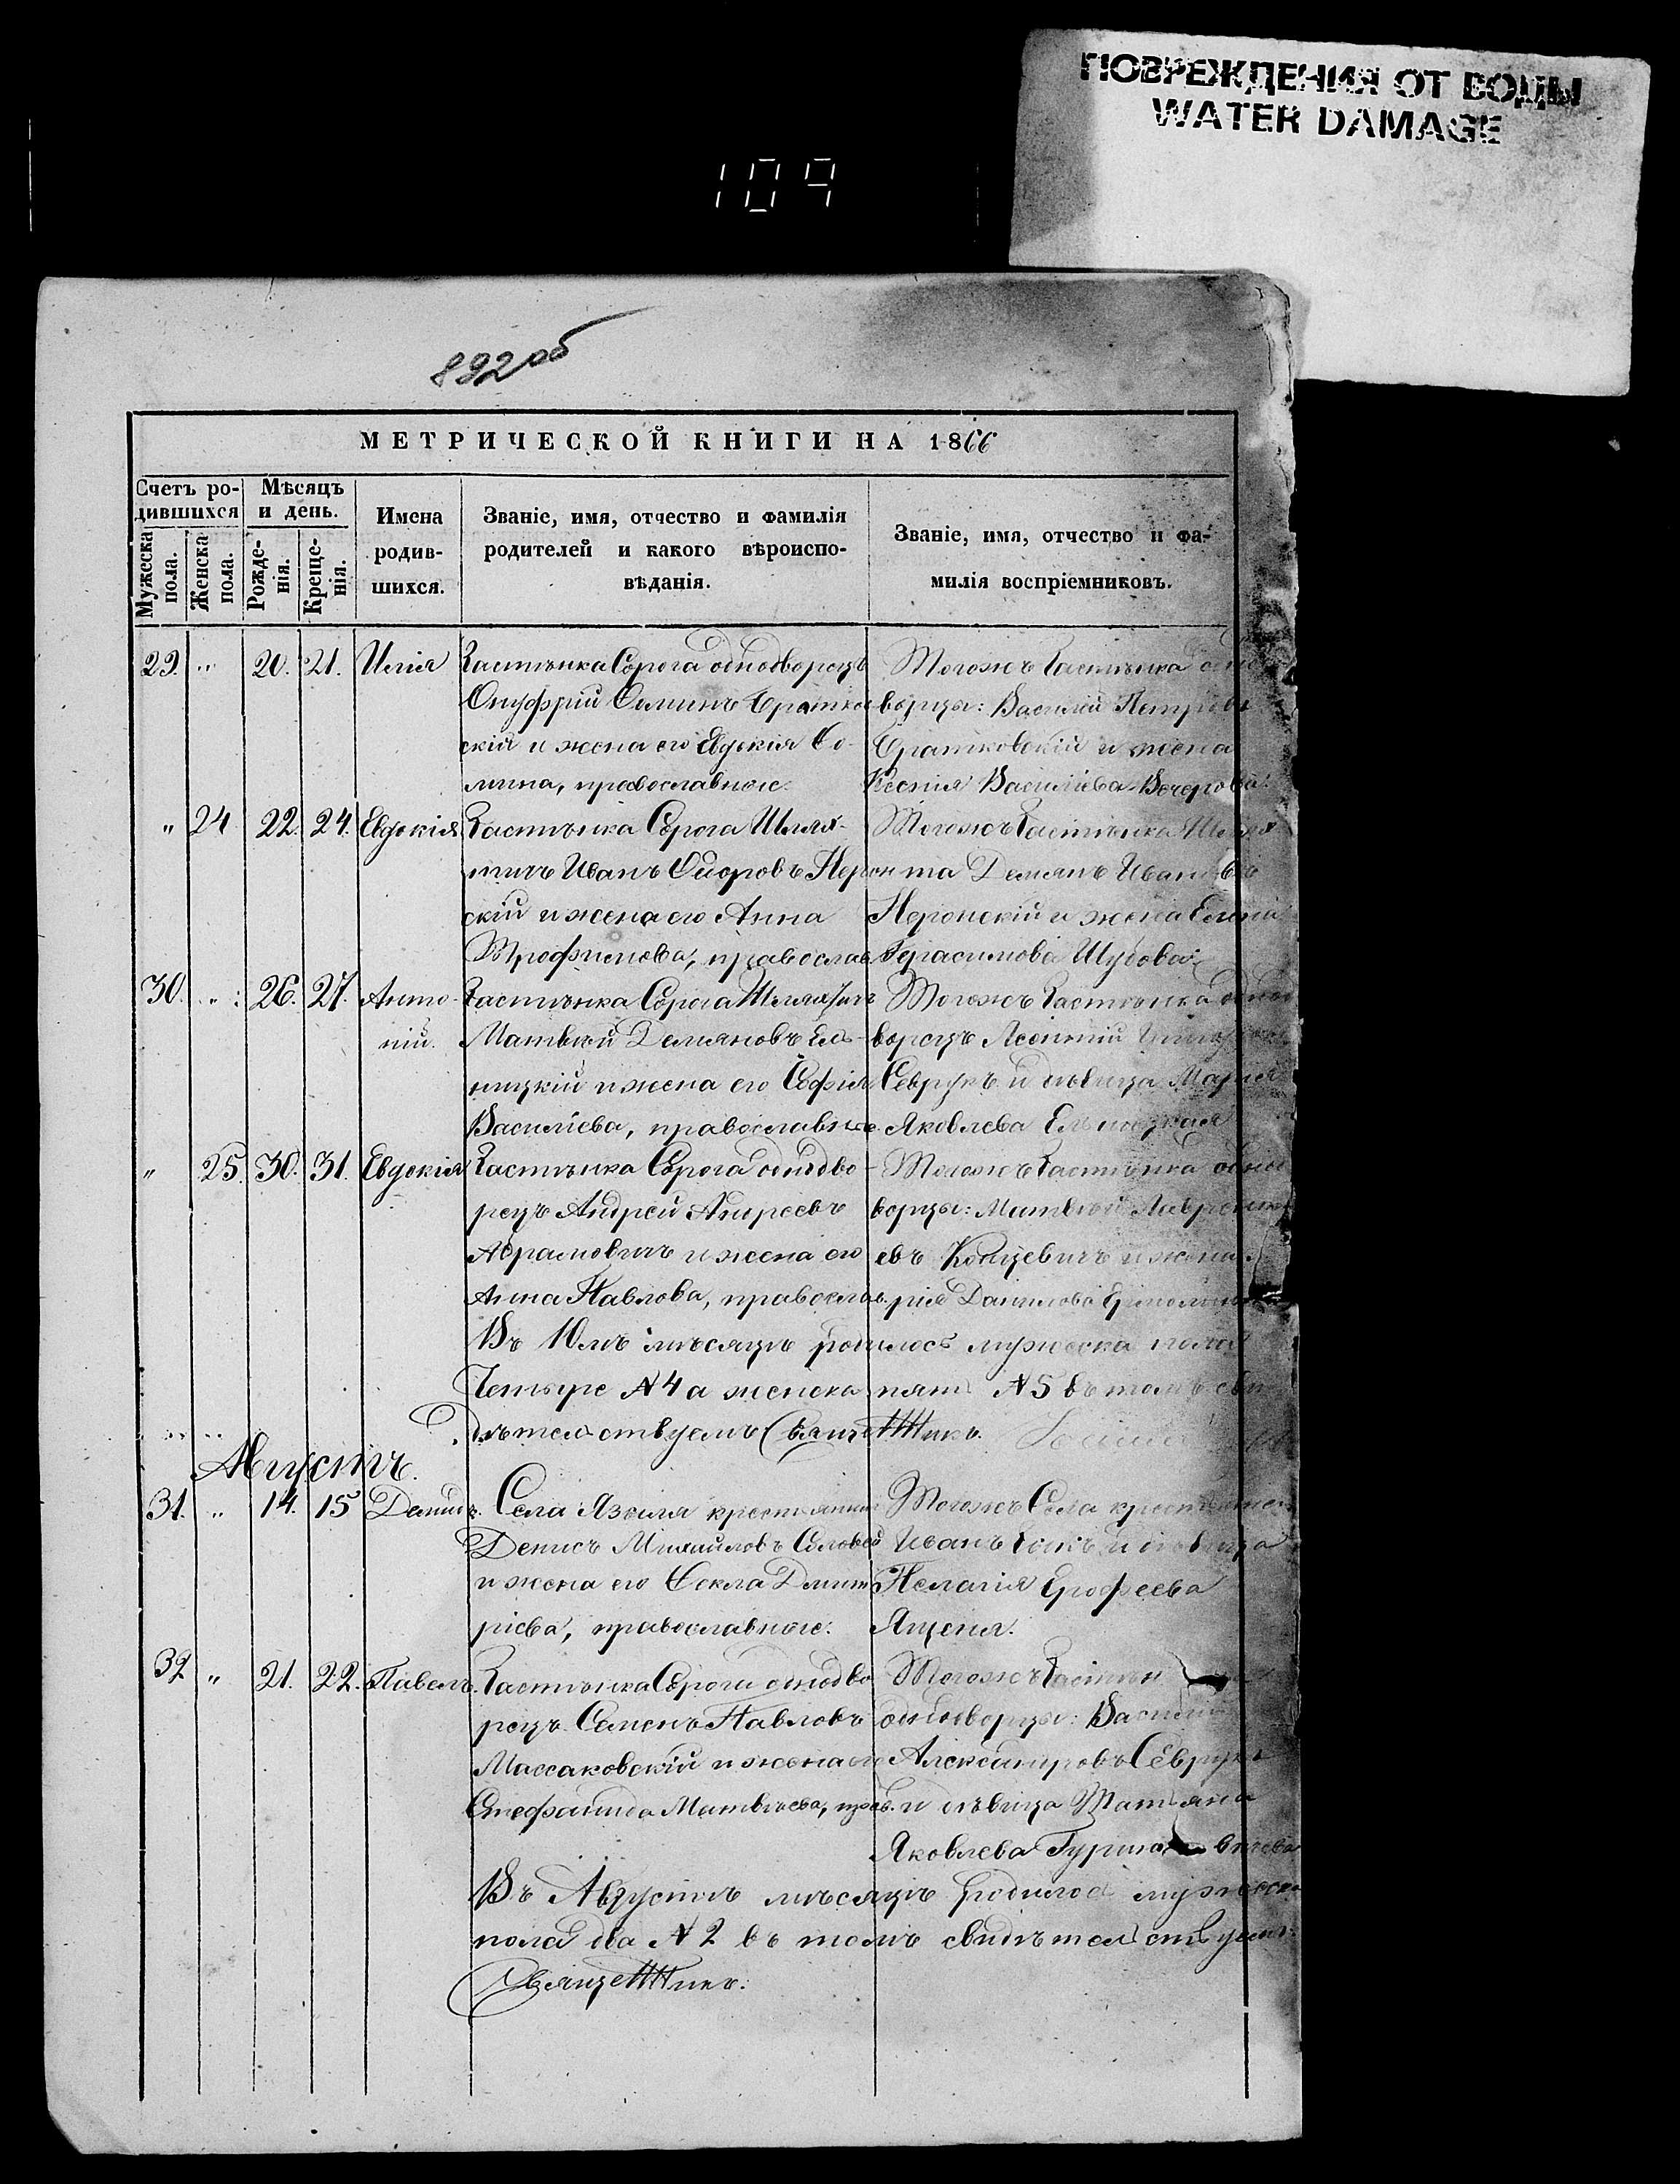 ПОВРЕЖДЕНИЯ ОТ ВОДЫ
WATER DAMAGE
109
892об
МЕТРИЧЕСКОЙ КНИГИ НА 1866
Счетъ ро-
дившихся
Мѣсяцъ
и день.
Мужеска
пола.
Женска
пола.
Рожде-
нія.
Креще-
нія.
Имена
родив-
шихся.
Званіе, имя, отчество и фамилія
родителей и какого вѣроиспо-
вѣданія.
Званіе, имя, отчество и фа-
милія воспріемниковъ.
29. " 20. 21. Илія
Застѣнка Сорога однодворецъ
Онуфрій
скій и жена его Евдокія Ѳо-
мина, православные.
Тогожъ Застѣнка одно
ворцы: Василій Петровъ
и жена
Ксенія Василіева
" 24 22. 24. Евдокія
Застѣнка Сорога Шлях-
тичъ Иванъ
скій и жена его Анна
Трофимова, православ
Тогожъ Застѣнка Шлях
та Демянъ Ивановъ
Неронскій и жена
Герасимова Шубова
30. " 26. 27. Анто-
ній.
Застѣнка Сорога Шляхтичъ
Матвѣй Демяновъ Ель-
ницкій и жена его Софія
Василіева, православные.
Тогожъ Застѣнка однод
ворецъ Леонтій
Севрукъ и дѣвица Марія
Яковлева Ельницкая
" 25. 30. 31. Евдокія
Застѣнка Сорога однодво-
рецъ Андрей Андреевъ
Абрамовичъ и жена его
Анна Павлова, православ.
Тогожъ Застѣнка одно
ворцы: Матвѣй
евъ и жена
рія Данилова
Въ Юлѣ мѣсяцѣ родилось мужеска пола
Четыре №4 а женска пять №5 въ томъ сви
дѣтельствуемъ Священникъ
Августъ.
31. " 14. 15 Данилъ.
Села Язвля крестьянинъ
Денисъ Михайловъ Соловей
и жена его Ѳекла Димит
ріева, православные.
Тогожъ Села крестьянинъ
Иванъ и дѣвица
Пелагія Ерофеева
Яценя.
32 " 21. 22. Павелъ.
Застѣнка Сороги однодво
рецъ Семенъ Павловъ
Массаковскій и жена его
Стефанида Матвѣева, прав.
Тогожъ Застѣн
однодворцы: Василій
Александровъ Севрукъ
и дѣвица Татьяна
Яковлева
Въ Августѣ мѣсяцѣ родилось мужеска
пола два №2 въ томъ свидѣтельствуемъ:
Священникъ: